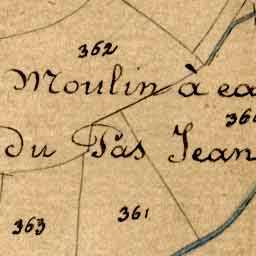 362
Moulin à ea
36
du Pas Jean
361
363